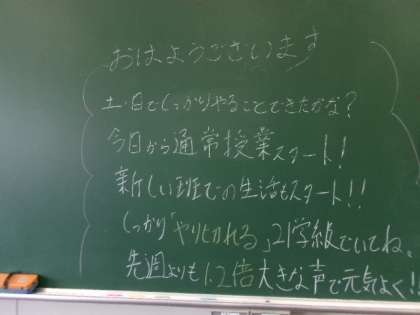 おはようございます
土・日でしっかりやることできたかな?
今日から通常授業スタート!
新しい班での生活もスタート!!
しっかり「やりきれる」21学級でいてね。
先週よりも1.2倍大きな声で元気よく!!